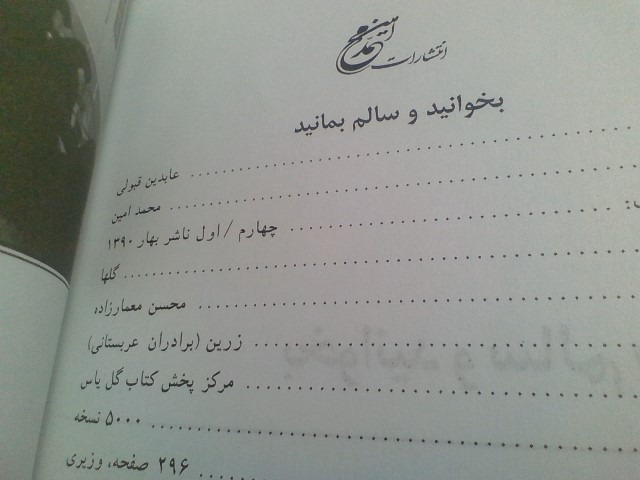 انتشارات محمد امین
بخوانید و سالم بمانید
عابدین قبولی
محمد امین
چهارم / اول ناشر بهار ۱۳۹۰
گلها
محسن معمارزاده
زرین (برادران عربستانی)
مرکز پخش کتاب گل یاس
۵۰۰۰ نسخه
۲۹۶ صفحه، وزیری